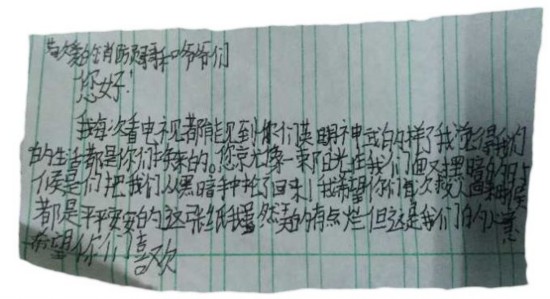 亲爱的消防哥哥和爷爷们
您好!
我每次看电视都能见到你们英明神武的样了我觉得我们
的生活都是你们换来的。您京尤像一束阳光在我们面又黑暗的
候是们把我们从黑暗手中抢了回来!我希望你们每次救人
都是平平安安的这张纸我虽然弄的有点烂但这是我们的心意
希望你们喜欢